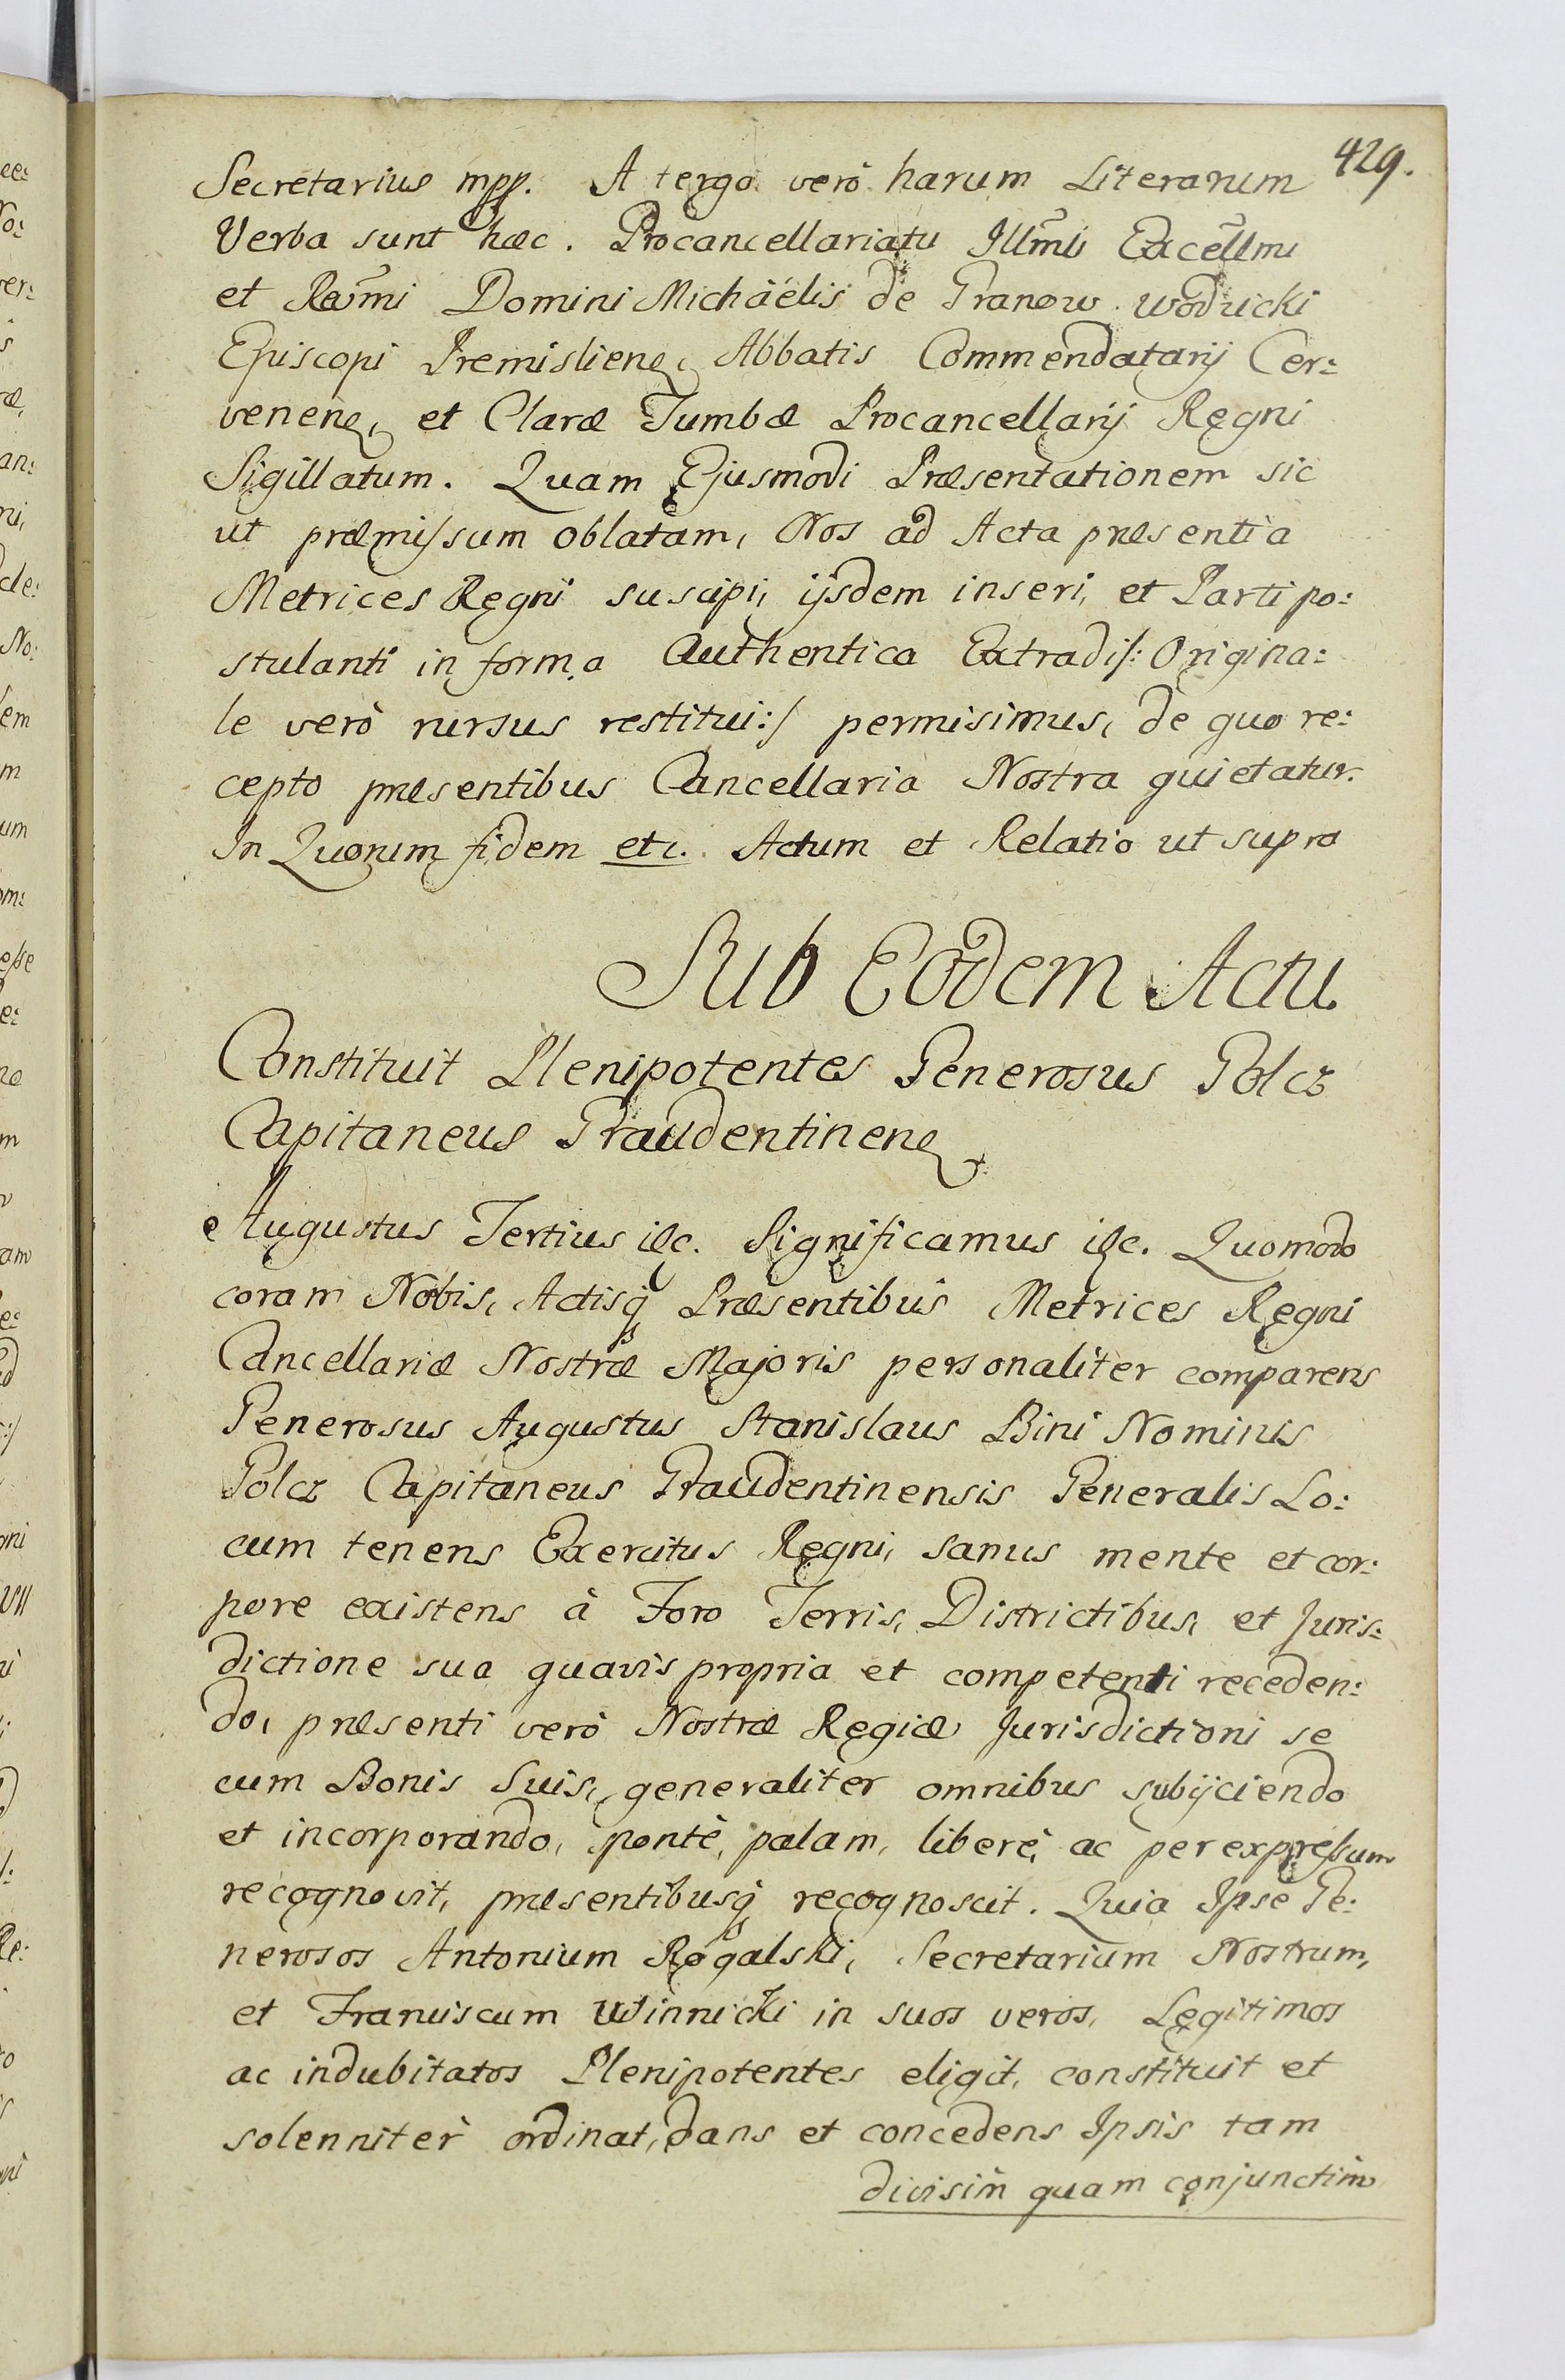 429.
Secretarius mpp. A tergo verò harum Literarum
Verba sunt hæc. Procancellariatu Illm̃i Excell̃mi
et Reṽmi Domini Michaëlis de Granow Wodzicki
Episcopi Premislienẽ, Abbatis Commendatarij Cer:
venenẽ, et Claræ Tumbæ Procancellarij Regni
Sigillatum. Quam Ejusmodi Præsentationem sic
ut præmissum oblatam, Nos ad Acta præsentia
Metrices Regni suscipi, ijsdem inseri, et Parti po:
stulanti in forma Authentica Extradi/: Origina:
le verò rursus restitui:/ permisimus, de quo re:
cepto præsentibus Cancellaria Nostra quietatur.
In Quorum fidem etc. Actum et Relatio ut supra
Sub Eodem Actu
Constituit Plenipotentes Generosus Golcz
Capitaneus Graudentinenẽ
Augustus Tertius etc. Significamus etc. Quomodo
coram Nobis, Actisq́ Præsentibus Metrices Regni
Cancellariæ Nostræ Majoris personaliter comparens
Generosus Augustus Stanislaus Bini Nominis
Golcz Capitaneus Graudentinensis Generalis Lo:
cum tenens Exercitus Regni, sanus mente et cor:
pore existens à Foro Terris, Districtibus, et Juris:
dictione sua quavis propria et competenti receden:
do, præsenti verò Nostræ Regiæ Jurisdictioni se
cum Bonis Suis, generaliter omnibus subijciendo
et incorporando, spontè, palam, liberè, ac per expressum
recognovit, præsentibusq́ recognoscit. Quia Ipse Ge:
nerosos Antonium Rogalski, Secretarium Nostrum,
et Franciscum Winnicki in suos veros, Legitimos
ac indubitatos Plenipotentes eligit, constituit et
solenniter ordinat, dans et concedens Ipsis tam
divisim quam conjunctim